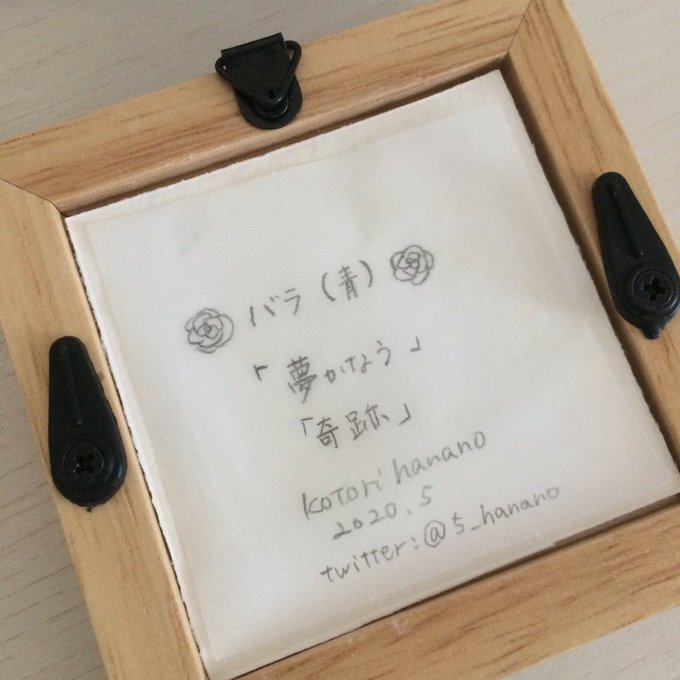 バラ(青)
「夢かなう」
「奇跡」
kotori hanano
2020.5
twitter:@5_hanano